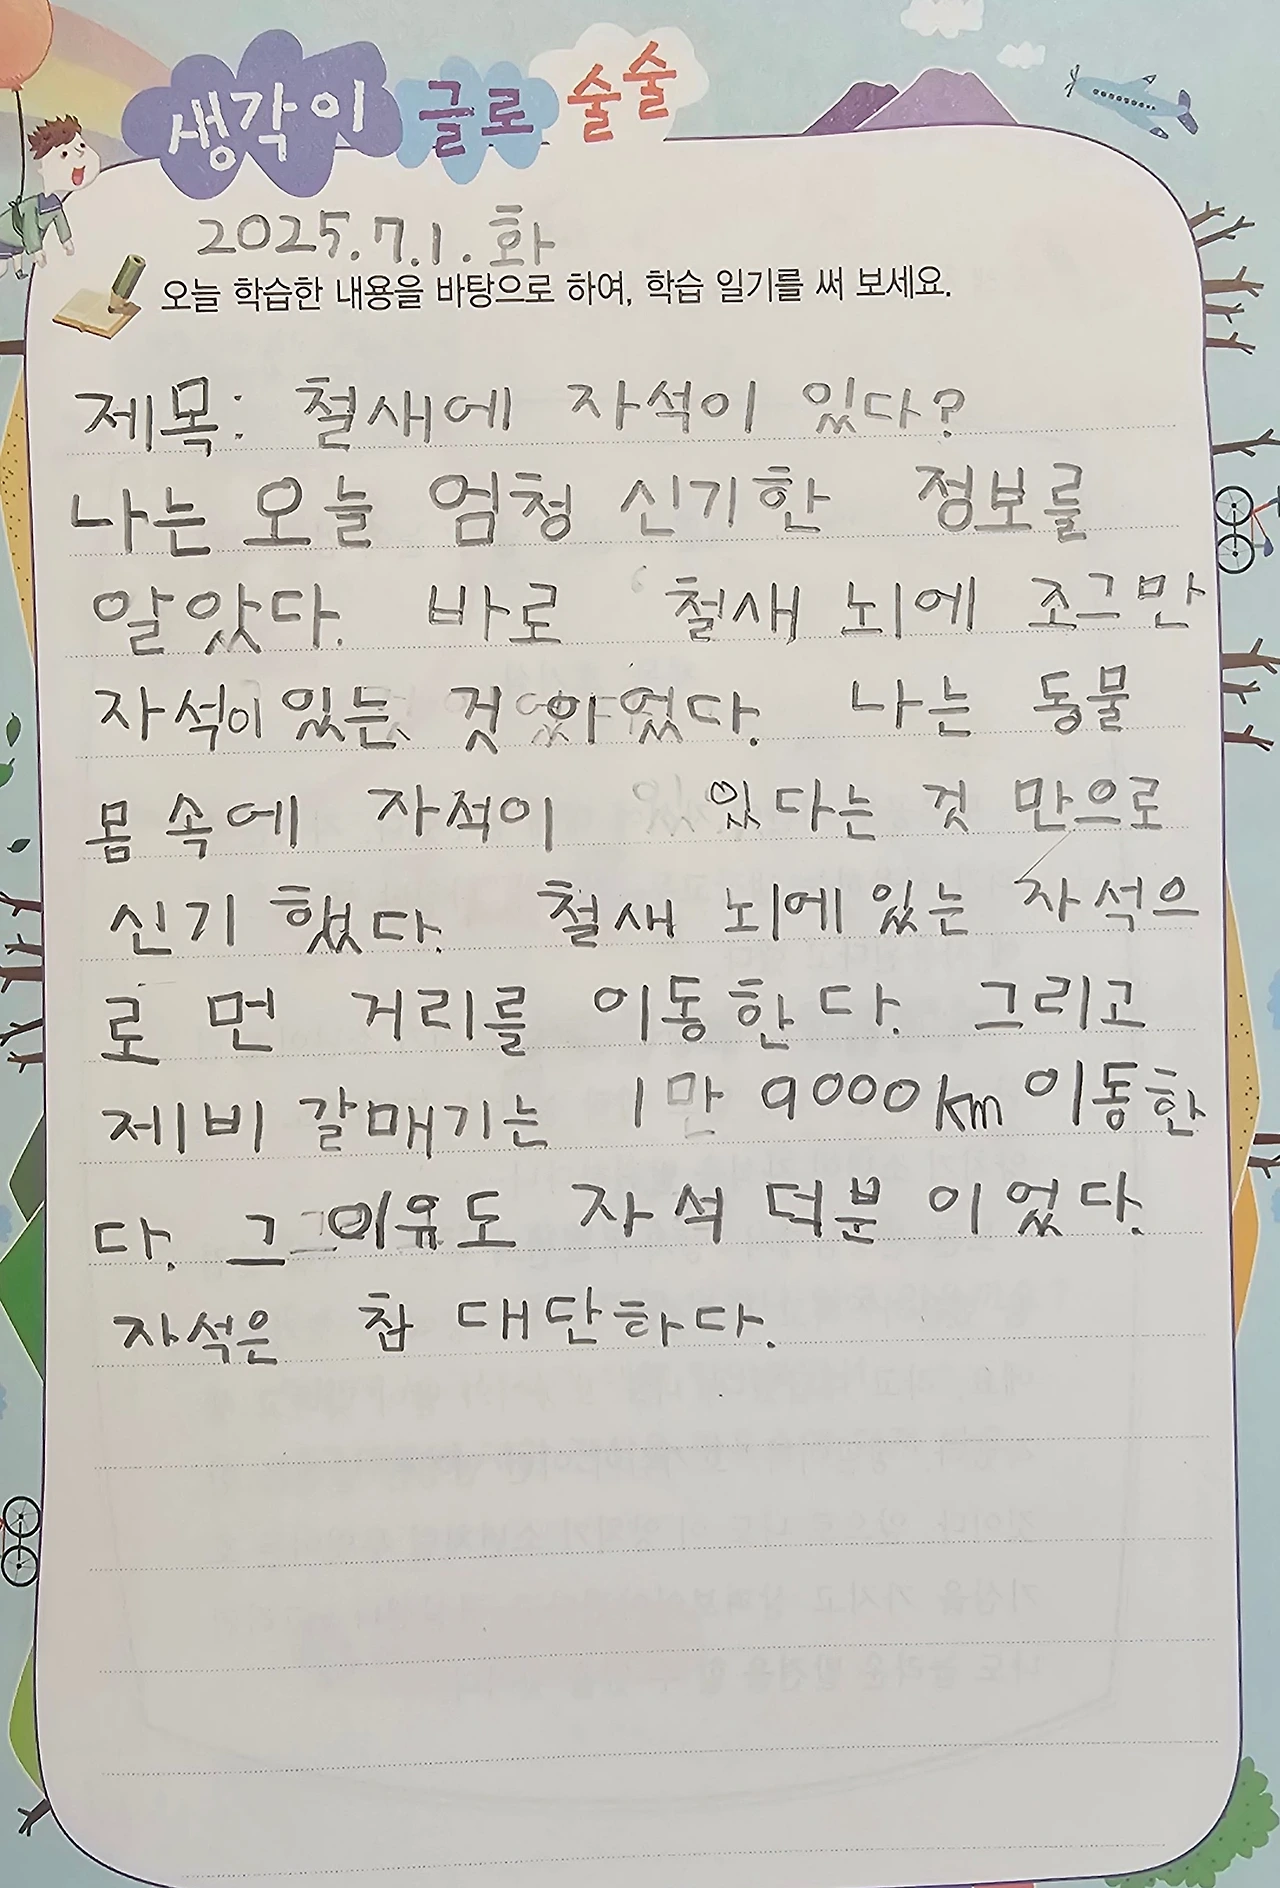 생각이 글로 술술
2025.7.1.화
오늘 학습한 내용을 바탕으로 하여, 학습 일기를 써 보세요.
제목: 철새에 자석이 있다?
나는 오늘 엄청 신기한 정보를
알았다. 바로 철새 뇌에 조그만
자석이 있는 것이었다. 나는 동물
몸 속에 자석이 있다는 것 만으로
신기 했다. 철새 뇌에 있는 자석으
로 먼 거리를 이동한다. 그리고
제비 갈매기는 1만 9000km 이동한
다. 그 이유도 자석 덕분 이었다.
자석은 참 대단하다.